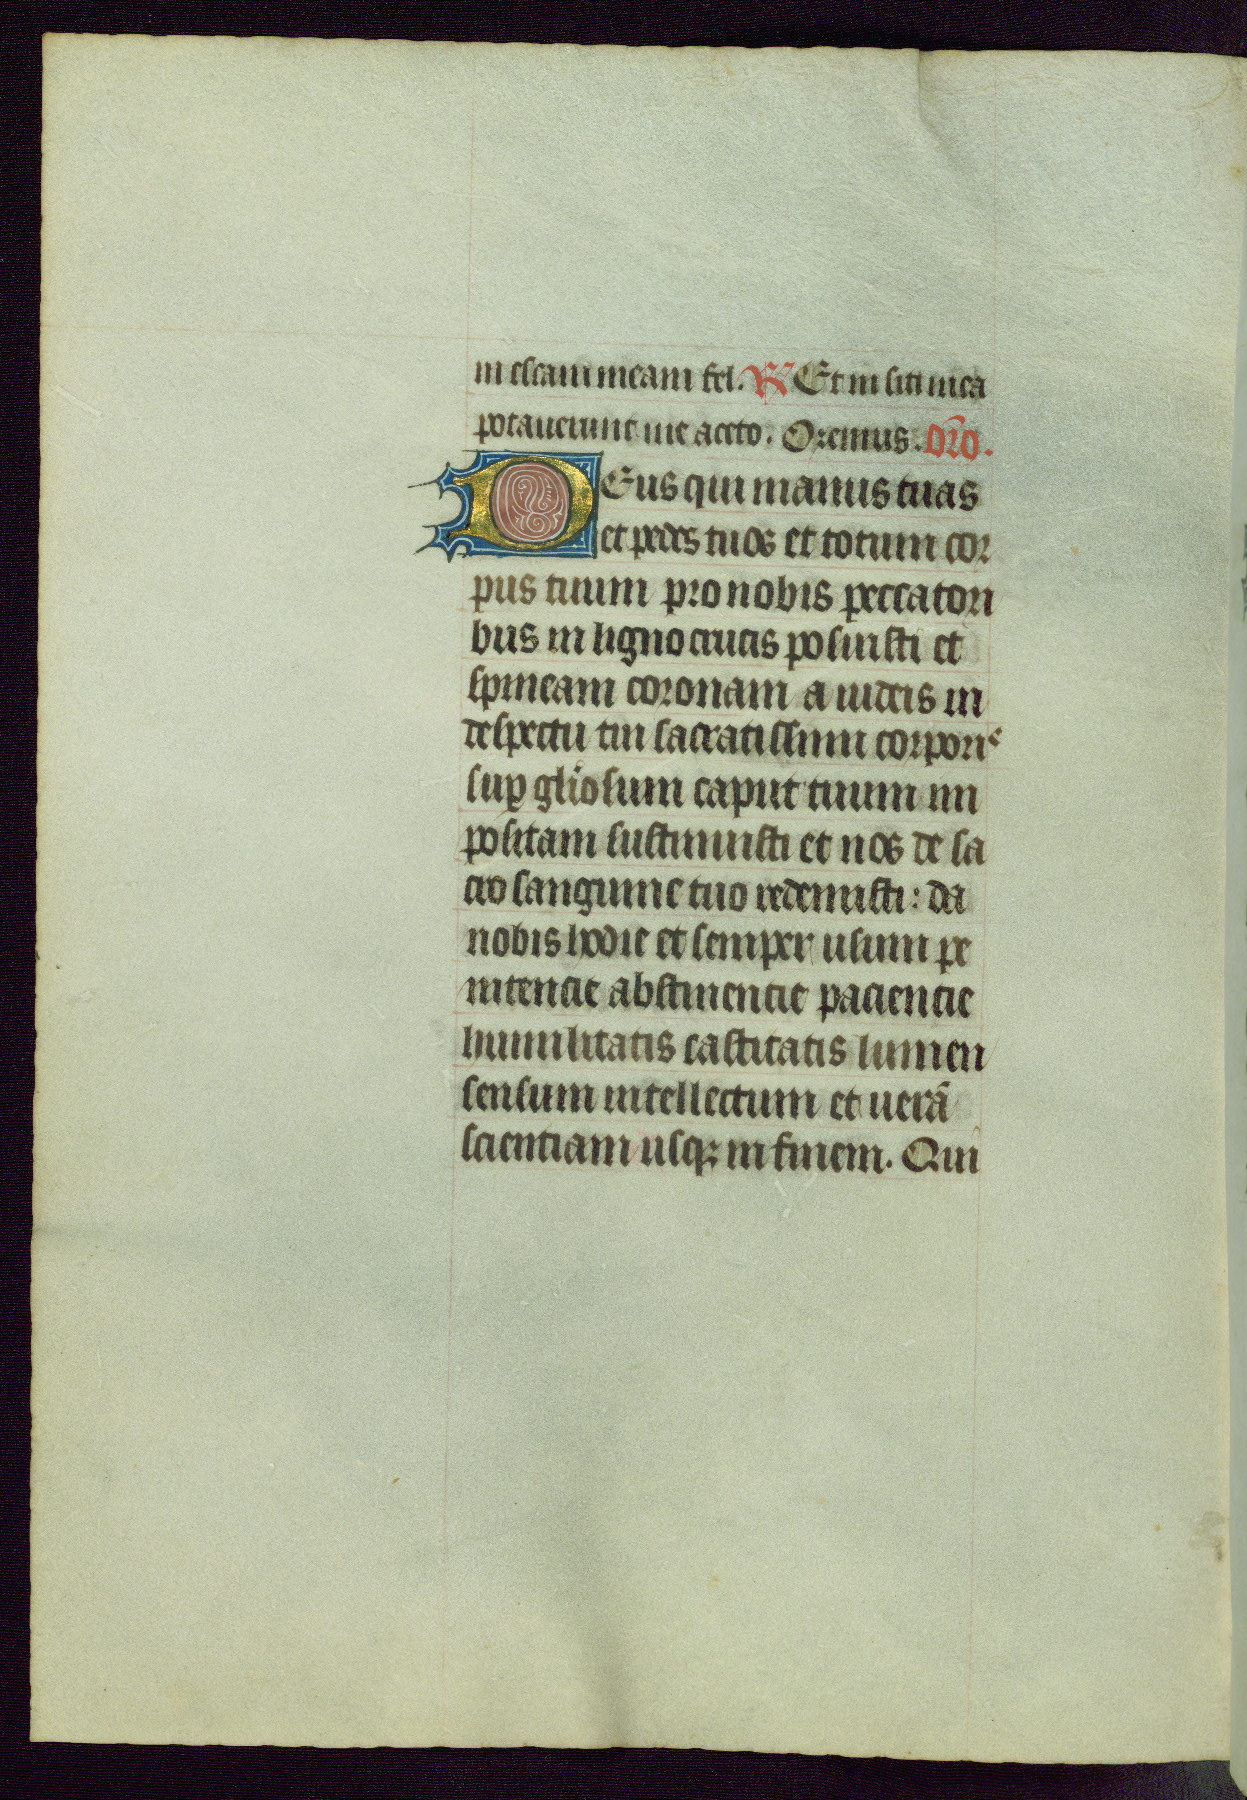 in escam meam fel. ℟ Et in siti mea
potauerunt me aceto. Oremus. Oro̅.
DEus qui manus tuas
et pedes tuos et totum cor
pus tuum pro nobis peccatori
bus in ligno crucis posuisti et
spineam coronam a iudeis in
despectu tui sacratissimi corporis
sup̱ gl̅iosum caput tuum im
positam sustinuisti et nos de sa
cro sanguine tuo redemisti: da
nobis hodie et semper usum pe
nitencie abstinencie paciencie
humilitatis castitatis lumen
sensum intellectum et uerā
scientiam usqꝫ in finem. Qui